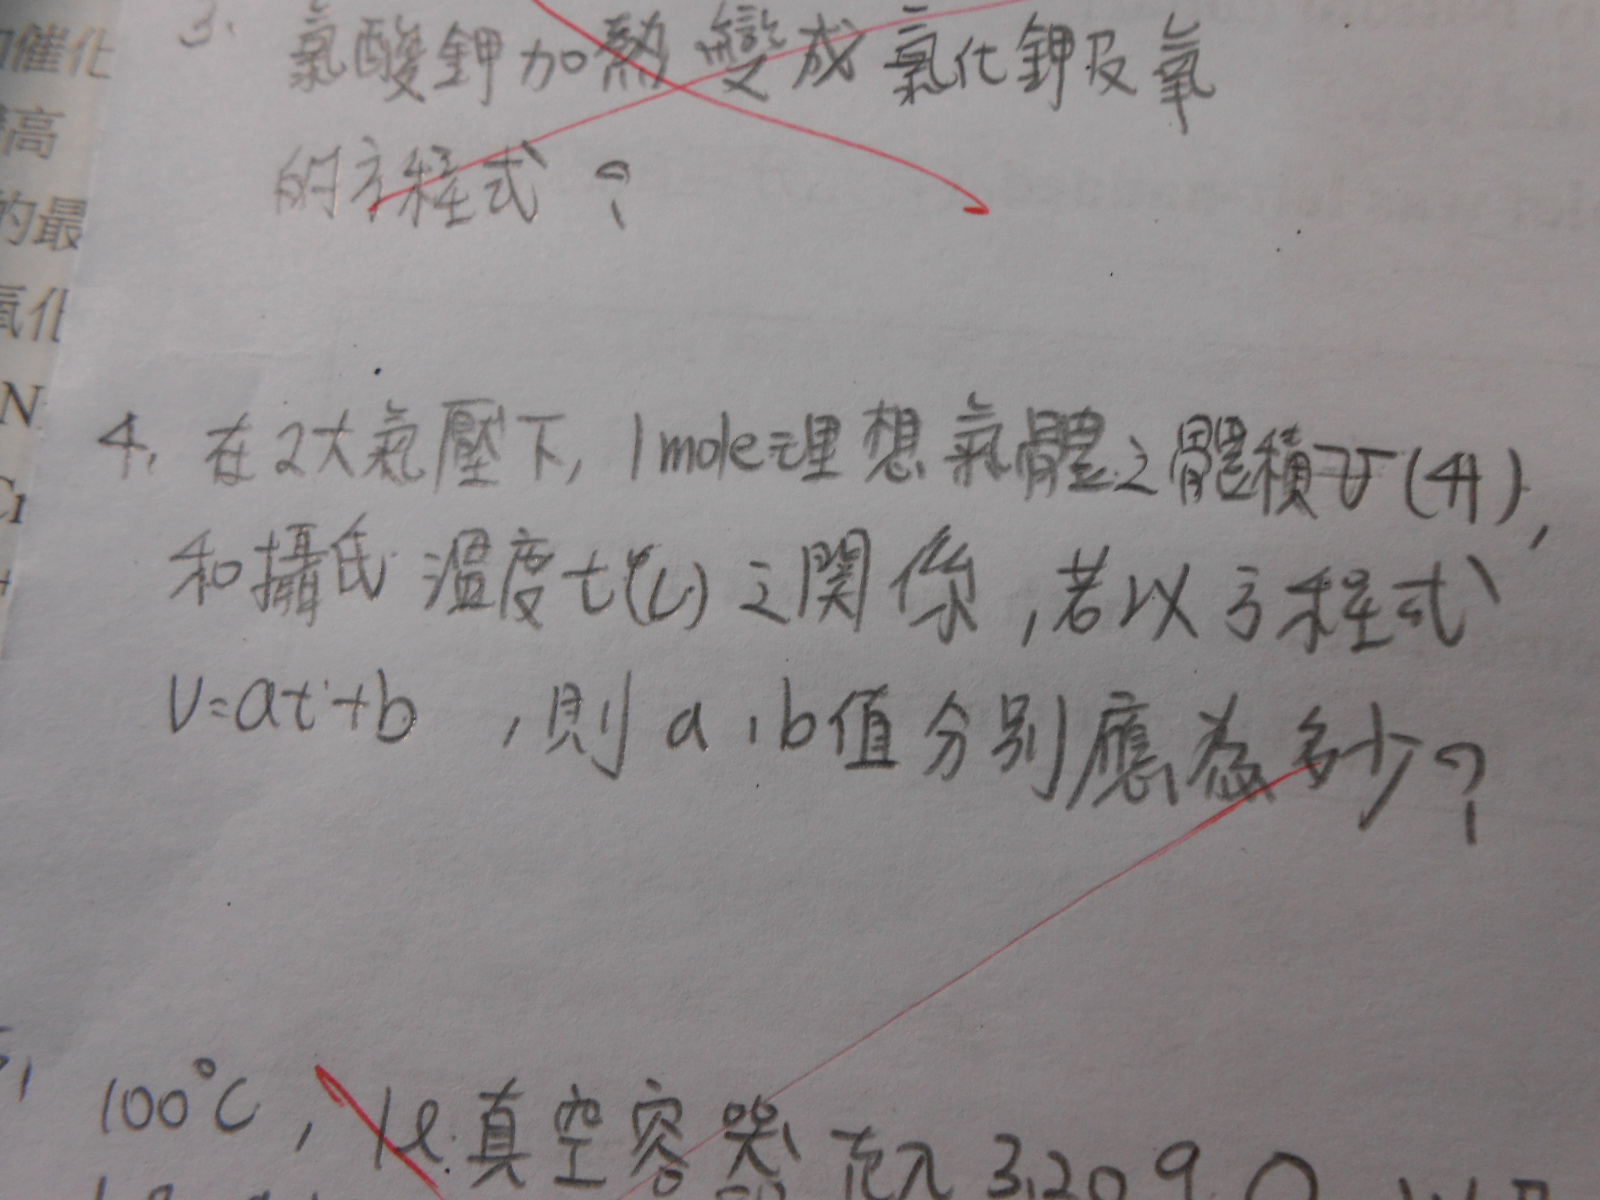 和催化
高
的最
氧化
N
Cr
3. 氯酸鉀加熱變成氯化鉀及氧
的方程式?
4. 在2大氣壓下, 1mole理想氣體之體積V(升),
和攝氏溫度t(℃)之關係,若以方程式
V=at+b ,則a、b值分別應為多少?
5.
100°C, 1ℓ真空容器
3.20g